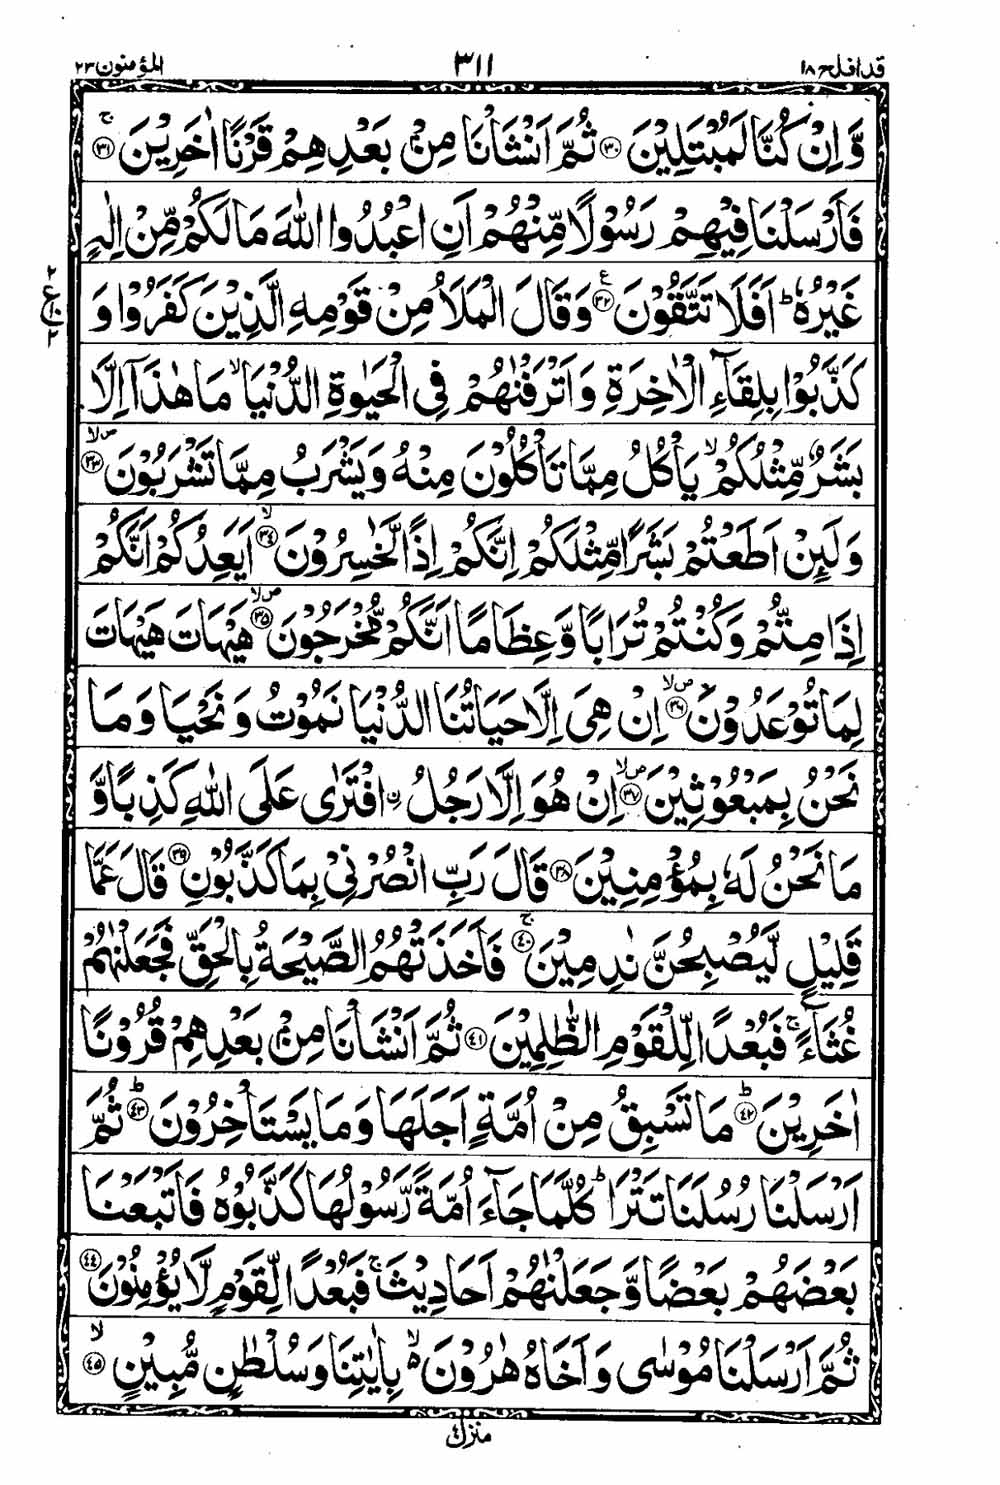 قد افلح ١٨
٣١١
المؤمنون ٢٣
وَّاِنْ كُنَّا لَمُبْتَلِيْنَ ﴿٣٠﴾ ثُمَّ اَنْشَاْنَا مِنْۢ بَعْدِهِمْ قَرْنًا اٰخَرِيْنَ ۚ﴿٣١﴾
فَاَرْسَلْنَا فِيْهِمْ رَسُوْلًا مِّنْهُمْ اَنِ اعْبُدُوا اللّٰهَ مَا لَكُمْ مِّنْ اِلٰهٍ
غَيْرُهٗ ؕ اَفَلَا تَتَّقُوْنَ ﴿٣٢﴾ۧ وَقَالَ الْمَلَاُ مِنْ قَوْمِهِ الَّذِيْنَ كَفَرُوْا وَ
كَذَّبُوْا بِلِقَآءِ الْاٰخِرَةِ وَاَتْرَفْنٰهُمْ فِى الْحَيٰوةِ الدُّنْيَا ۙ مَا هٰذَآ اِلَّا
بَشَرٌ مِّثْلُكُمْ ۙ يَاْكُلُ مِمَّا تَاْكُلُوْنَ مِنْهُ وَيَشْرَبُ مِمَّا تَشْرَبُوْنَ ۪ۙ﴿٣٣﴾
وَلَئِنْ اَطَعْتُمْ بَشَرًا مِّثْلَكُمْ اِنَّكُمْ اِذًا لَّخٰسِرُوْنَ ۙ﴿٣٤﴾ اَيَعِدُكُمْ اَنَّكُمْ
اِذَا مِتُّمْ وَكُنْتُمْ تُرَابًا وَّعِظَامًا اَنَّكُمْ مُّخْرَجُوْنَ ۪ۙ﴿٣٥﴾ هَيْهَاتَ هَيْهَاتَ
لِمَا تُوْعَدُوْنَ ۪ۙ﴿٣٦﴾ اِنْ هِىَ اِلَّا حَيَاتُنَا الدُّنْيَا نَمُوْتُ وَنَحْيَا وَمَا
نَحْنُ بِمَبْعُوْثِيْنَ ۪ۙ﴿٣٧﴾ اِنْ هُوَ اِلَّا رَجُلُ ۨ افْتَرٰى عَلَى اللّٰهِ كَذِبًا وَّ
مَا نَحْنُ لَهٗ بِمُؤْمِنِيْنَ ﴿٣٨﴾ قَالَ رَبِّ انْصُرْنِىْ بِمَا كَذَّبُوْنِ ﴿٣٩﴾ قَالَ عَمَّا
قَلِيْلٍ لَّيُصْبِحُنَّ نٰدِمِيْنَ ۚ﴿٤٠﴾ فَاَخَذَتْهُمُ الصَّيْحَةُ بِالْحَقِّ فَجَعَلْنٰهُمْ
غُثَآءً ۚ فَبُعْدًا لِّلْقَوْمِ الظّٰلِمِيْنَ ﴿٤١﴾ ثُمَّ اَنْشَاْنَا مِنْۢ بَعْدِهِمْ قُرُوْنًا
اٰخَرِيْنَ ؕ﴿٤٢﴾ مَا تَسْبِقُ مِنْ اُمَّةٍ اَجَلَهَا وَمَا يَسْتَاْخِرُوْنَ ؕ﴿٤٣﴾ ثُمَّ
اَرْسَلْنَا رُسُلَنَا تَتْرَا ؕ كُلَّمَا جَآءَ اُمَّةً رَّسُوْلُهَا كَذَّبُوْهُ فَاَتْبَعْنَا
بَعْضَهُمْ بَعْضًا وَّجَعَلْنٰهُمْ اَحَادِيْثَ ۚ فَبُعْدًا لِّقَوْمٍ لَّا يُؤْمِنُوْنَ ﴿٤٤﴾
ثُمَّ اَرْسَلْنَا مُوْسٰى وَاَخَاهُ هٰرُوْنَ ۙ۬ بِاٰيٰتِنَا وَسُلْطٰنٍ مُّبِيْنٍ ۙ﴿٤٥﴾
منزل ٤